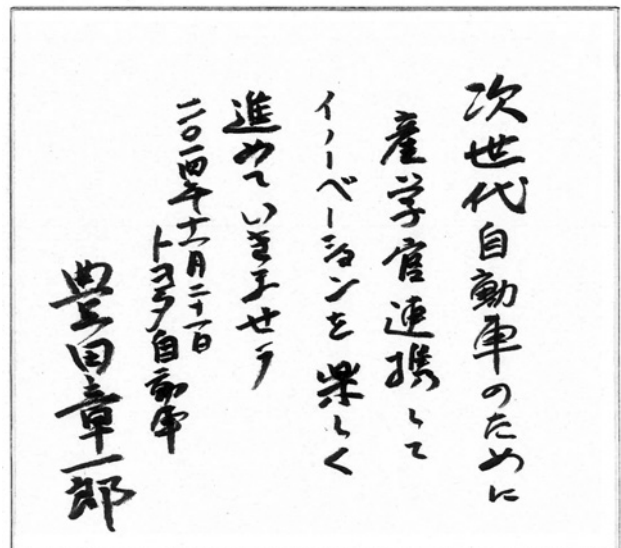 次世代自動車のために
産学官連携して
イノーベーションを楽しく
進めていきませう
二〇一四年十一月二十一日
トヨタ自動車
豊田章一郎